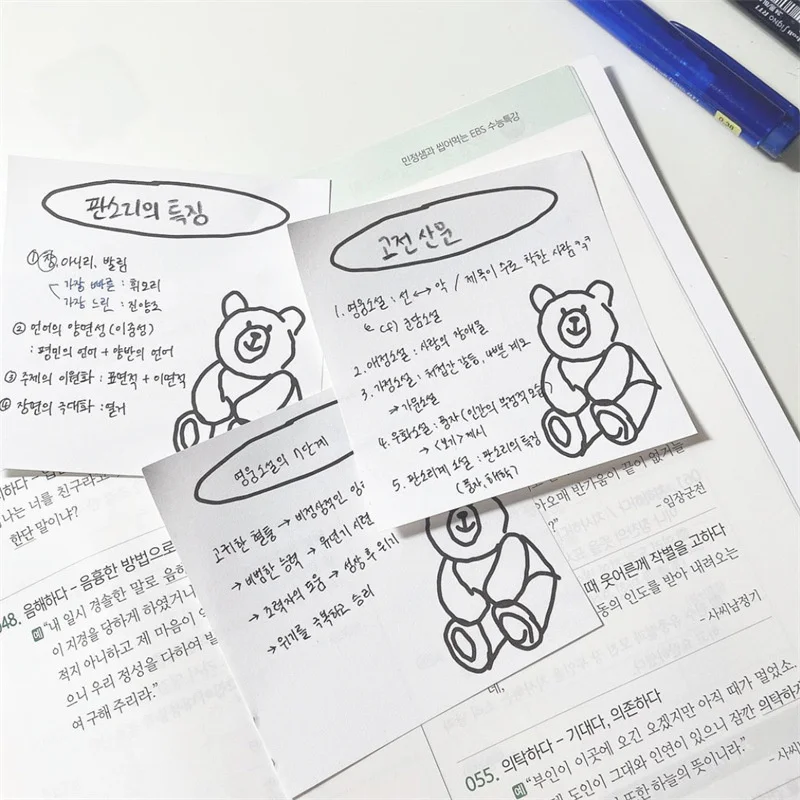 민정샘과 씹어먹는 EBS 수능특강
판소리의 특징
① 창, 아니리, 발림
가장 빠른 : 휘모리
가장 느린 : 진양조
② 언어의 양면성 (이중성)
: 평민의 언어 + 양반의 언어
③ 주제의 이원화 : 표면적 + 이면적
④ 장면의 극대화 : 열거
고전 산문
1. 영웅소설 : 선 ↔ 악 / 제목이 주로 착한 사람
cf) 군담소설
2. 애정소설 : 사랑의 장애물
3. 가정소설 : 처첩간 갈등, 나쁜 계모
→ 가문소설
4. 우화소설 : 풍자 (인간의 부정적 모습)
→ <보기> 제시
5. 판소리계 소설 : 판소리의 특징
(풍자, 해학)
영웅소설의 7단계
고귀한 혈통 → 비정상적인
→ 비범한 능력 → 유년기 시련
→ 조력자의 도움 → 성장 후 위기
→ 위기를 극복하고 승리
나는 너를 친구라
한단 말이냐?
048. 음해하다 – 음흉한 방법으로
예 “내 일시 경솔한 말로 음해
이 지경을 당하게 하였거니
적지 아니하고 제 마음이
으니 우리 정성을 다하여
여 구해 주리라.”
아오매 반가움이 끝이 없거늘
?”
– 임장군전
때 웃어른께 작별을 고하다
동의 인도를 받아 내려오는
– 사씨남정기
데,
055. 의탁하다 – 기대다, 의존하다
예 “부인이 이곳에 오긴 오겠지만 아직 때가 멀었소.
도인이 그대와 인연이 있으니 잠깐 의탁하
또한 하늘의 뜻이니라.”
– 사씨